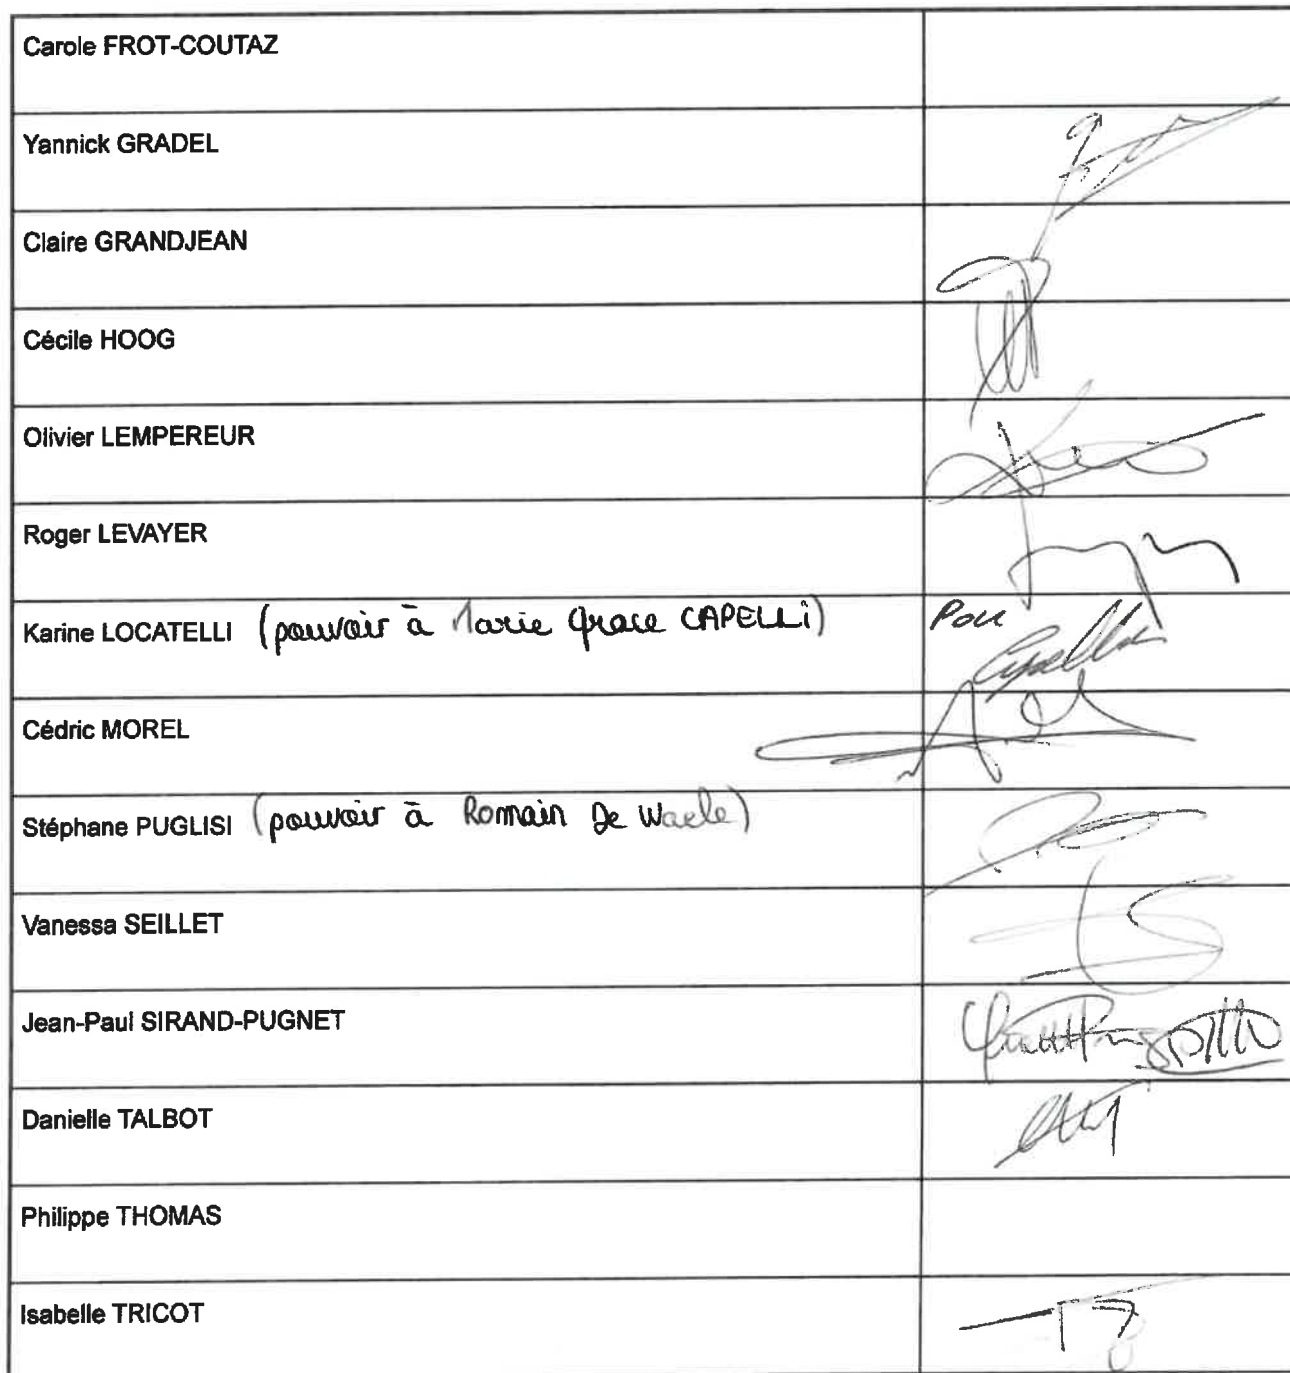 Carole FROT-COUTAZ
Yannick GRADEL
Claire GRANDJEAN
Cécile HOOG
Olivier LEMPEREUR
Roger LEVAYER
Karine LOCATELLI (pouvoir à Marie Grace CAPELLI) Pour
Cédric MOREL
Stéphane PUGLISI (pouvoir à Romain De Waele)
Vanessa SEILLET
Jean-Paul SIRAND-PUGNET
Danielle TALBOT
Philippe THOMAS
Isabelle TRICOT